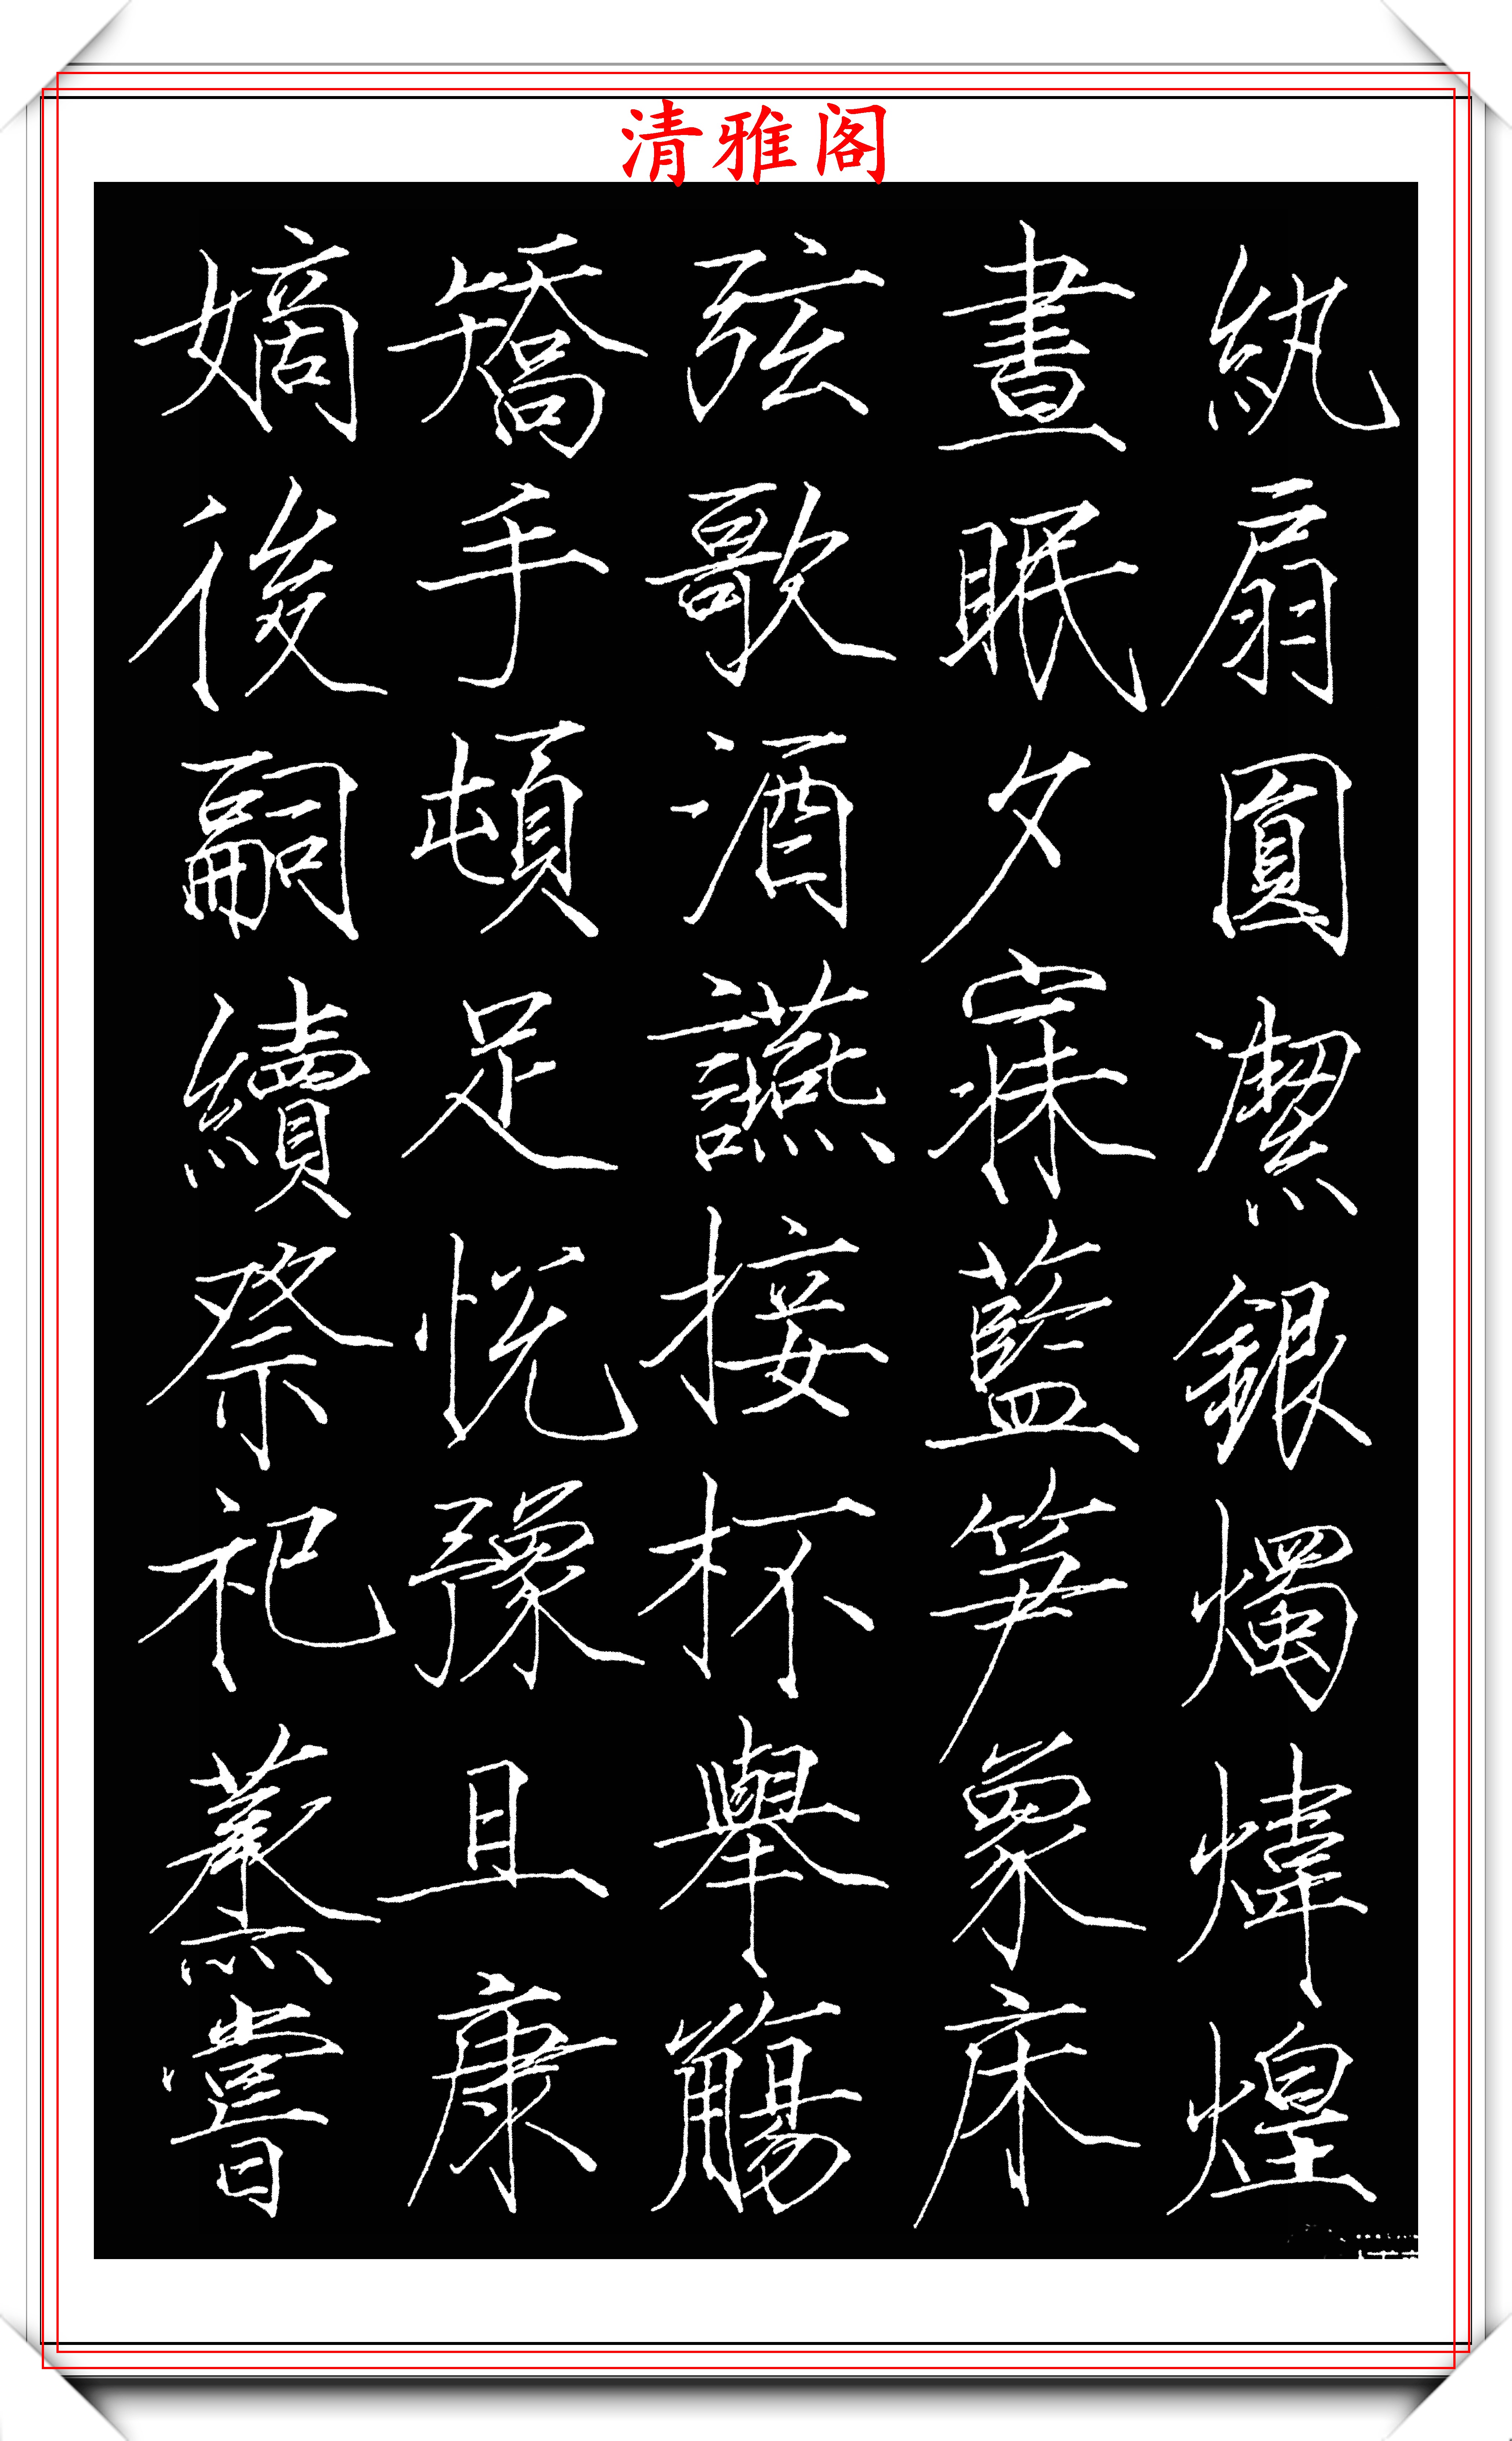 清雅阁
紈扇圓潔銀燭煒煌
晝眠夕寐藍笋象床
弦歌酒讌接杯舉觴
矯手頓足悅豫且康
嫡後嗣續祭祀蒸嘗